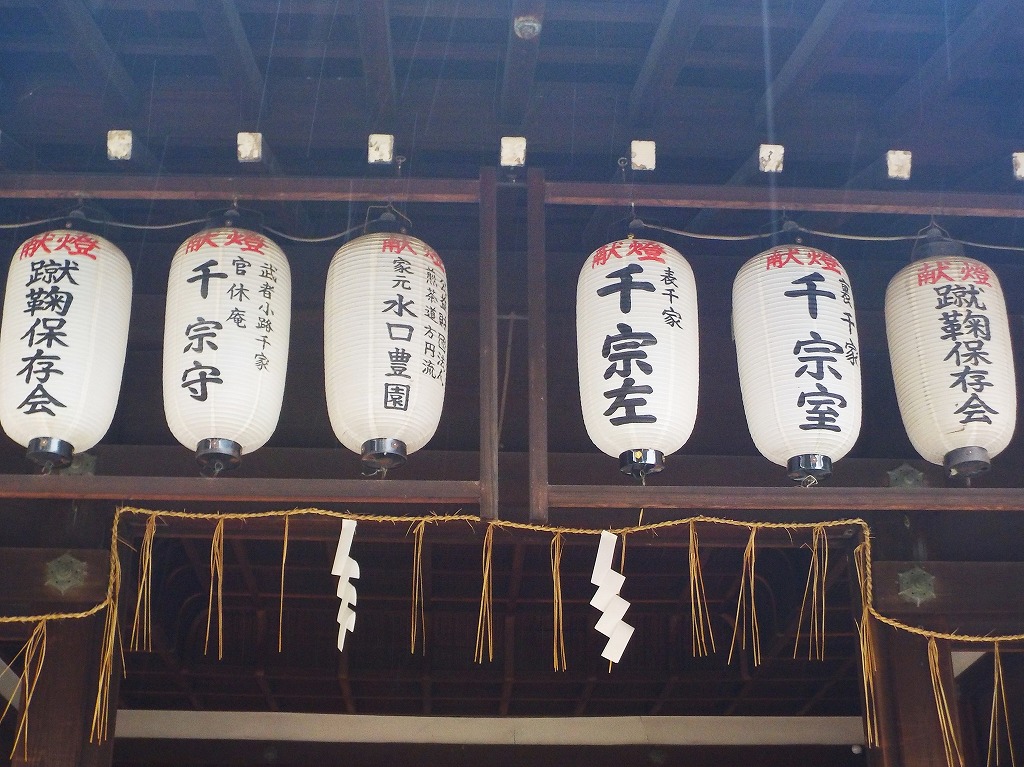 献燈
蹴鞠保存会
献燈
武者小路千家
官休庵
千宗守
献燈
公益財団法人
煎茶道方円流
家元
水口豊園
献燈
表千家
千宗左
献燈
裏千家
千宗室
献燈
蹴鞠保存会